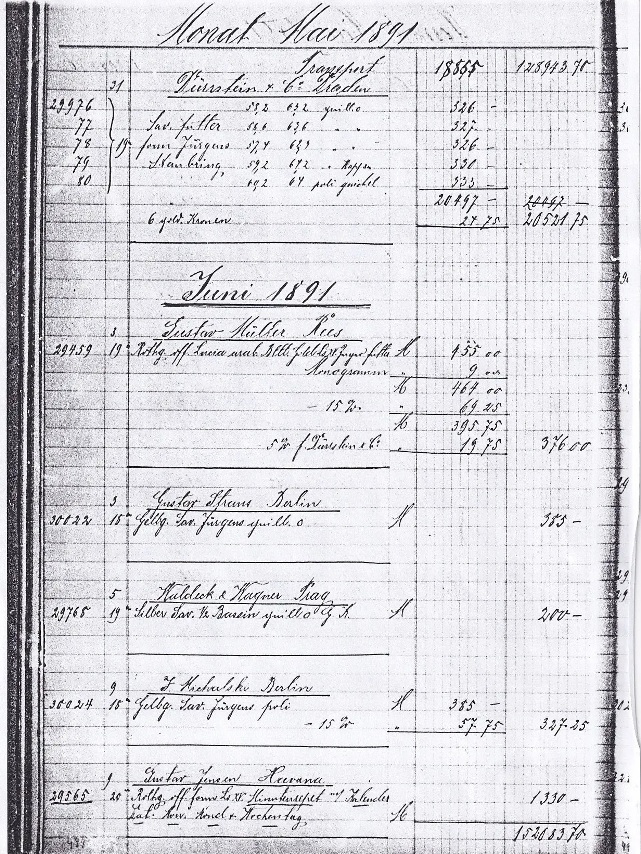 Monat Mai 1891
Transport 18855 128943.70
31 Dürrstein & Co Dresden
29976 58,2 63,2 guill. o 326 –
77 Sav. futter 58,6 63,6 " " 327 –
78 19''' form Jürgens 57,4 63,9 " " 326 –
79 59,2 67,2 " 330 –
80 60,2 64 poli 333 –
20497 – 20497 –
6 gold. Kronen 24 75 20521 75
Juni 1891
3 Gustav Mülder Rees
29459 19''' Rothg. off. Lucia arab. M 455 00
Monogramm " 9 00
M 464 00
– 15 % " 69 25
M 395 75
5 % f. Dürrstein & Co " 19 75 376 00
3 Gustav Straus Berlin
30022 18''' Gelbg. Sav. Jürgens guill. o M 385 –
5 Waldeck & Wagner Prag
29765 19''' Silber Sav. 1/2 Bassin guill. o M 200 –
9 J. Michalski Berlin
30024 18''' Gelbg. Sav. Jürgens poli M 385 –
– 15 % " 57 75 327 25
9 Gustav Jensen Havana
29565 20''' Rothg. off. form Ls XV Minutenrepet. m/ Kalender 1330 –
Mond & Wochentag M
152083 70